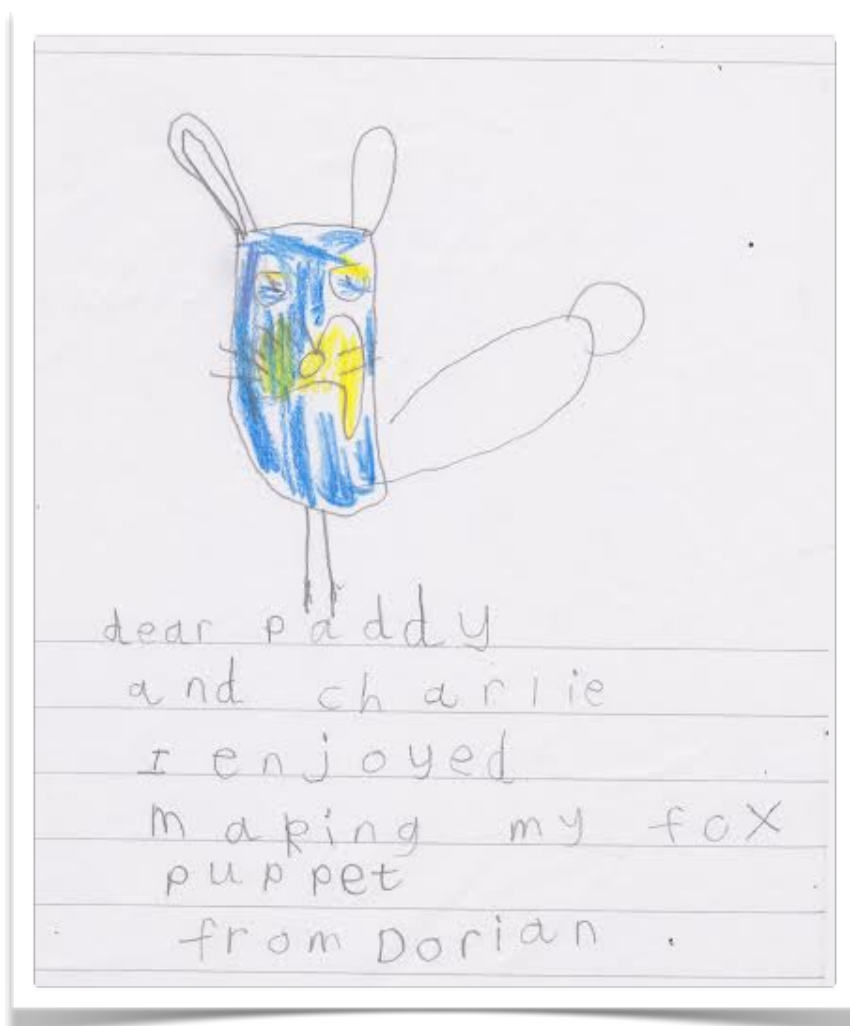 dear paddy
and charlie
I enjoyed
making my fox
puppet
from Dorian .